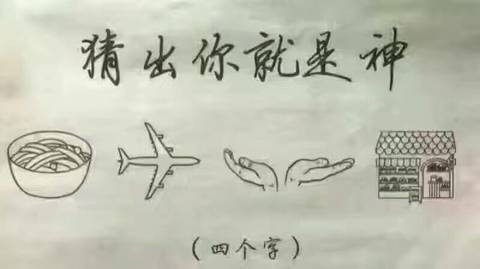 猜出你就是神
(四个字)